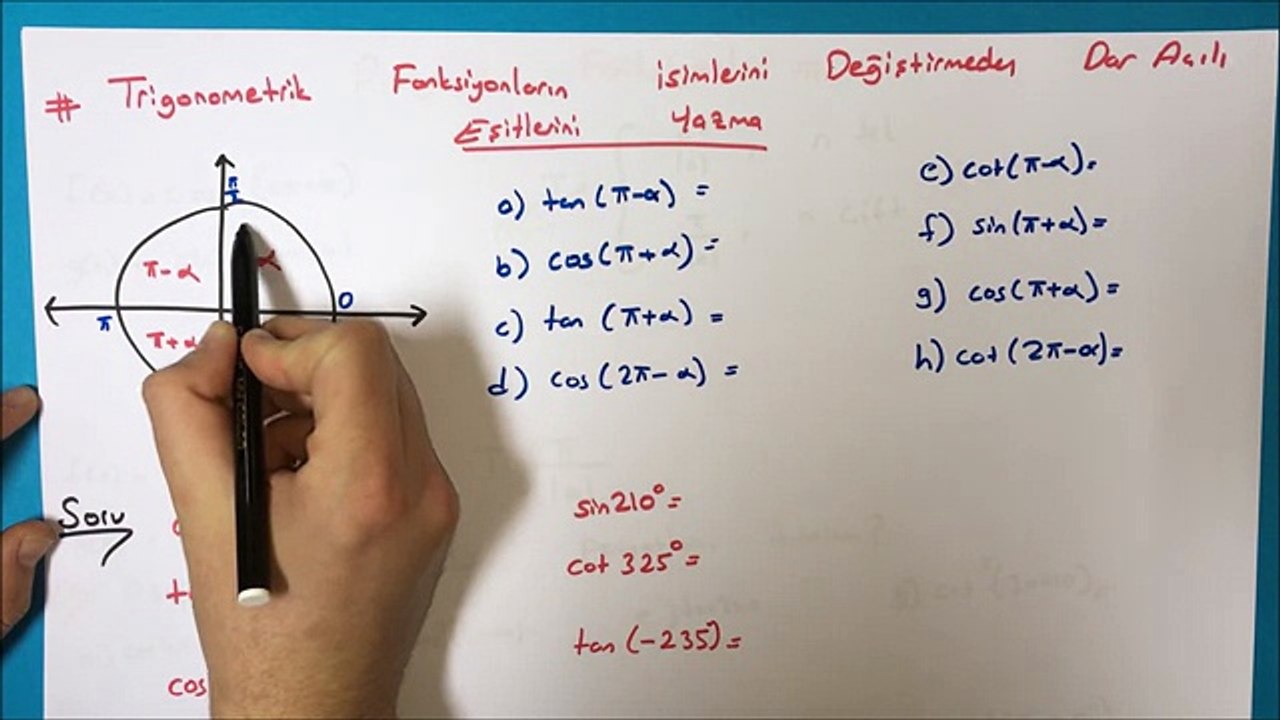 # Trigonometrik Fonksiyonların isimlerini Değiştirmeden Dar Açılı
Eşitlerini Yazma
π/2
π-α α
π 0
π+α
a) tan(π-α) =
b) cos(π+α) =
c) tan (π+α) =
d) cos(2π-α) =
e) cot(π-α)=
f) sin(π+α)=
g) cos(π+α)=
h) cot(2π-α)=
Soru
sin210°=
cot 325°=
tan(-235°)=
cos